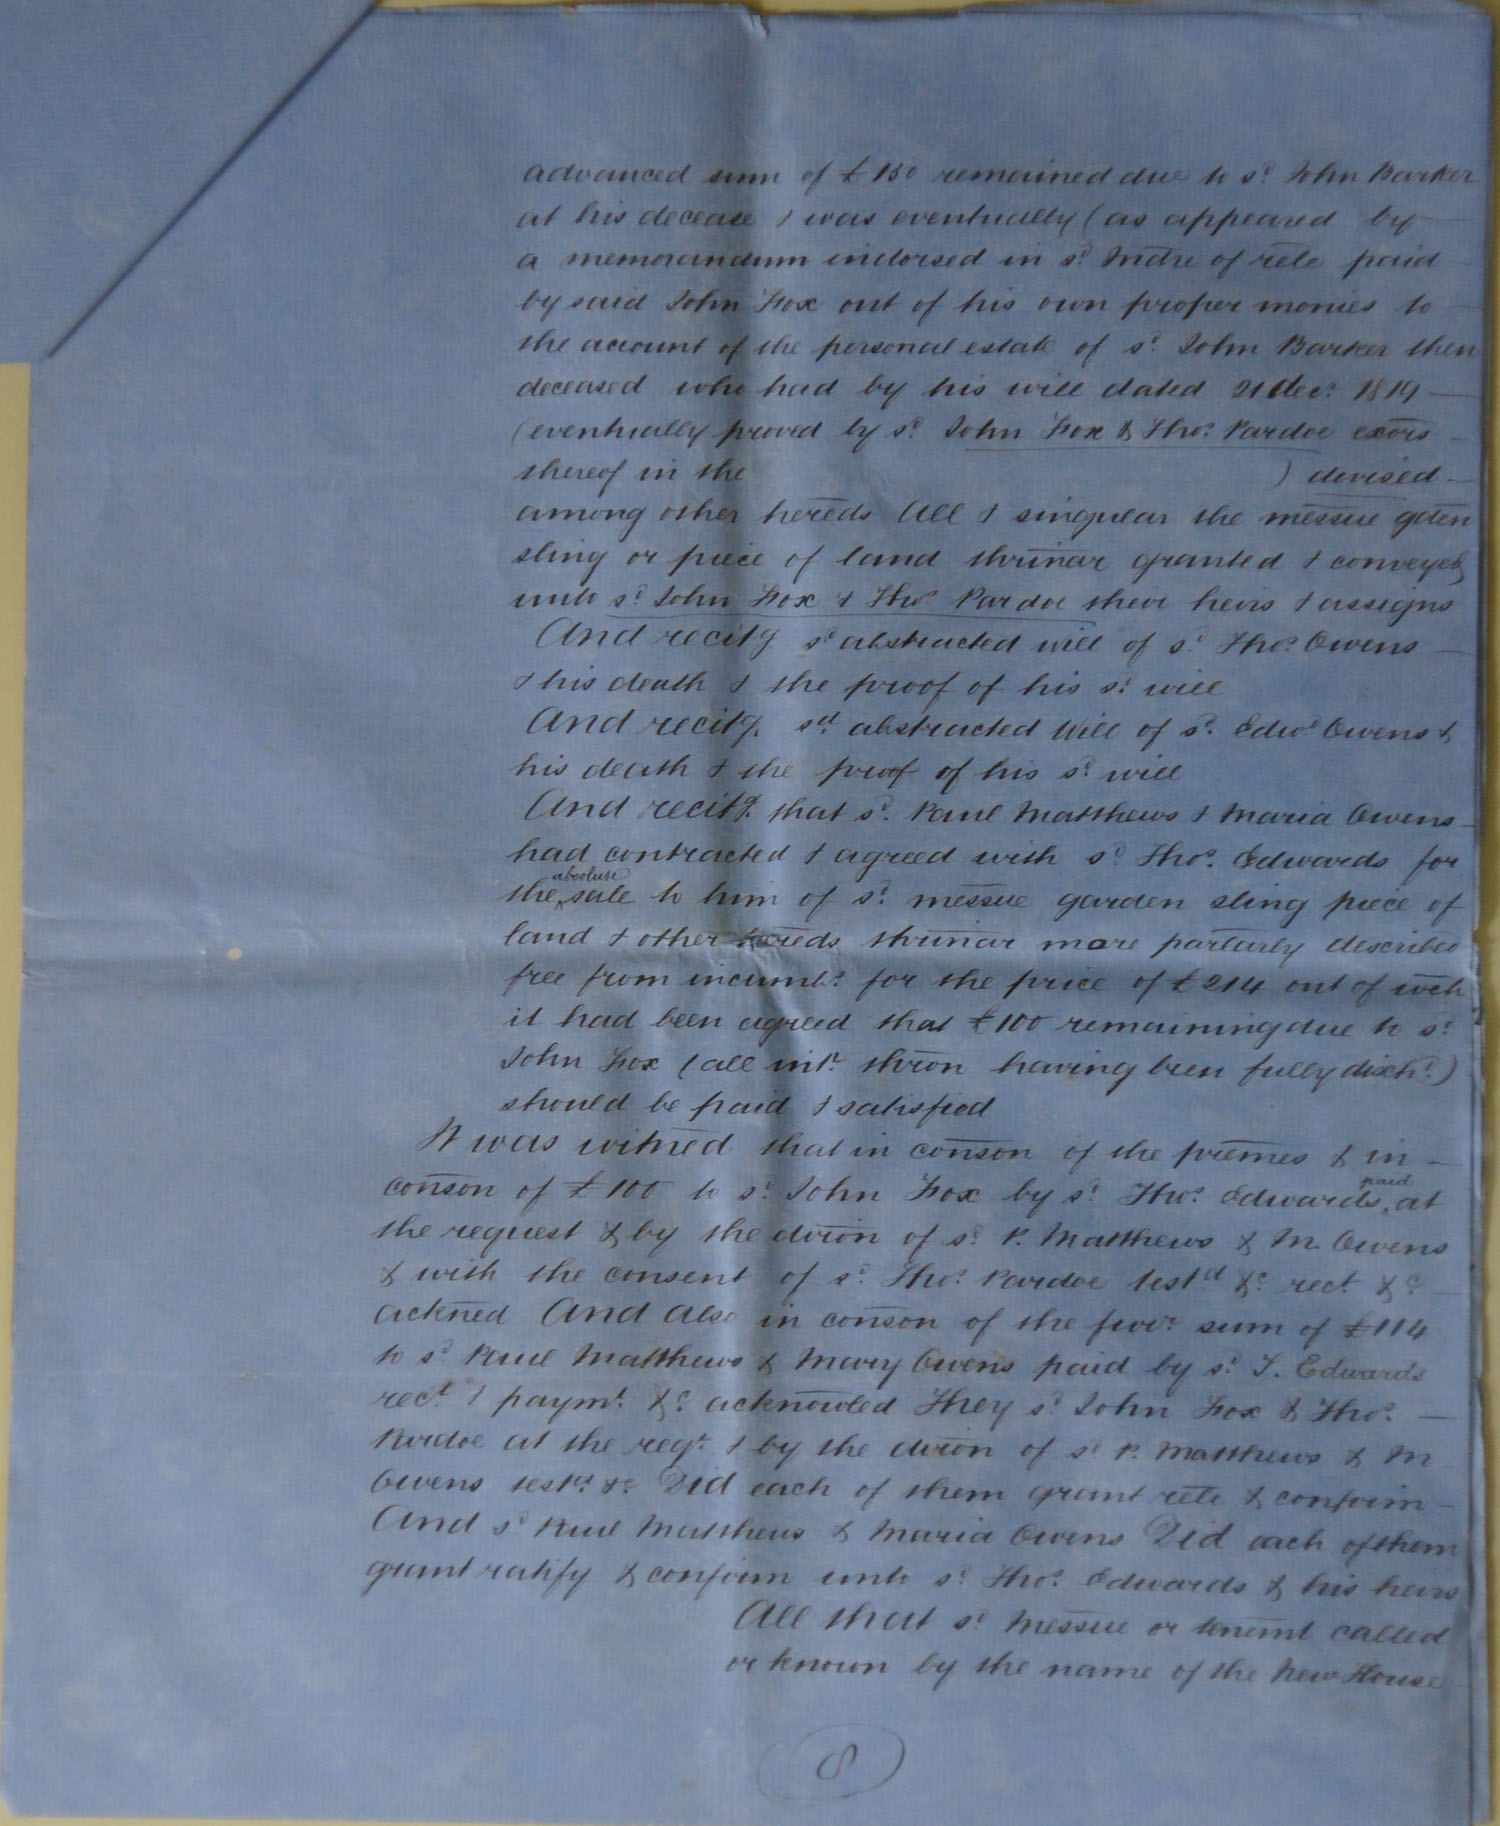 advanced sum of £150 remained due to sd. John Barker
at his decease & was eventually (as appeared by
a memorandum indorsed in sd. Indre of rele paid
by said John Fox out of his own proper monies to
the account of the personal estate of sd. John Barker then
deceased who had by his will dated 21 Decr. 1819
(eventually proved by sd. John Fox & Thos. Pardoe exors
thereof in the ) devised
among other hereds All & singular the messue gden
sling or piece of land thrinar granted & conveyed
unto sd. John Fox & Thos. Pardoe their heirs & assigns
And recitg sd abstracted will of sd Thos. Owens
& his death & the proof of his sd. will
And recitg. sd. abstracted Will of sd. Edwd. Owens &
his death & the proof of his sd. will
And recitg. that sd. Paul Matthews & Maria Owens
had contracted & agreed with sd. Thos. Edwards for
the absolute sale to him of sd. messue garden sling piece of
land & other hereds thrinar more partarly described
free from incumbs. for the price of £214 out of wch
it had been agreed that £100 remaining due to sd.
John Fox (all intt. thron having been fully dischd.)
should be paid & satisfied
It was witned that in conson of the premes & in
conson of £100 to sd. John Fox by sd. Thos. Edwards paid at
the request & by the diron of sd. P. Matthews & M. Owens
& with the consent of sd. Thos. Pardoe testd &c rect. &c
ackned And also in conson of the furr. sum of £114
to sd Paul Matthews & Mary Owens paid by sd. T. Edwards
rect. & paymt. &c. acknowled They sd John Fox & Thos.
Pardoe at the reqt. & by the diron of sd P. Matthews & M
Owens testd. &c. Did each of them grant rele & confirm
And sd Paul Matthews & Maria Owens Did each of them
grant ratify & confirm unto sd. Thos. Edwards & his heirs
All that sd. messue or tenemt called
or known by the name of the New House
8